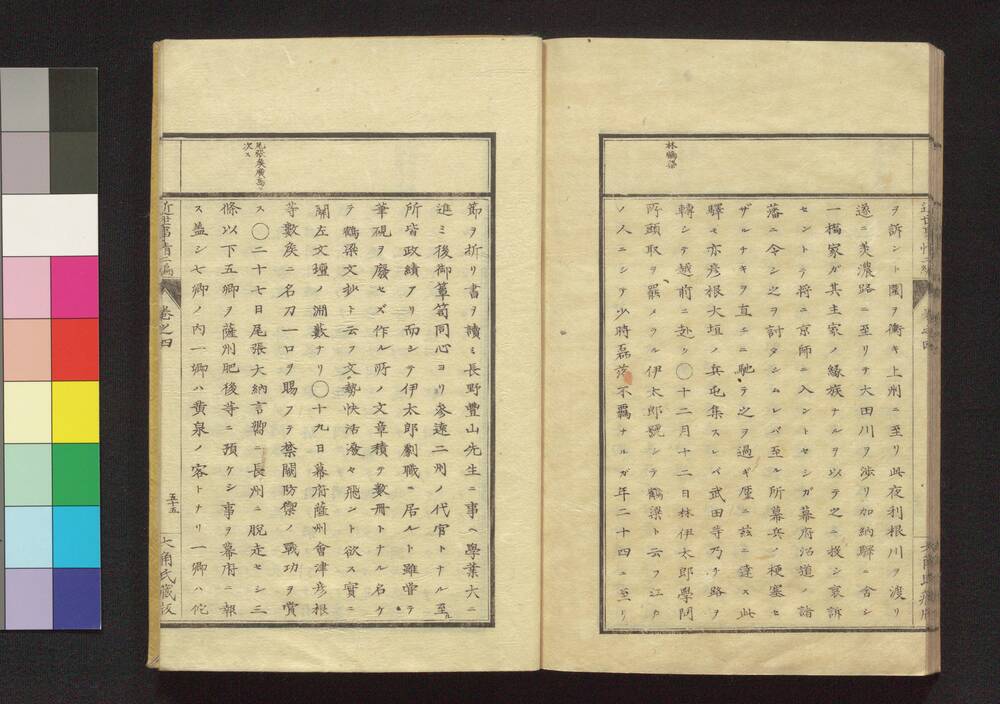 林鶴梁
ヲ訴ント闕ヲ衝キ上州ニ至リ此夜利根川ヲ渡リ
遂ニ美濃路ニ至リテ大田川ヲ渉リ加納驛ニ舎シ
一橋家ガ其主家ノ縁族ナルヲ以テ之ニ投シ哀訴
セントテ将ニ京師ニ入ントセシガ幕府沿道ノ諸
藩ニ令シ之ヲ討タシムレバ至ル所幕兵ノ梗塞セ
ザルナキヲ直ニニ馳テ之ヲ過ギ厪ニ茲ニ達ス此
驛モ亦彦根大垣ノ兵屯集スレバ武田等乃チ路ヲ
轉シテ越前ニ赴ク〇十二月十二日林伊太郎學問
所頭取ヲ罷メラル伊太郎號シテ鶴梁ト云フ江戸
ノ人ニシテ少時磊落不羈ナルガ年二十四ニ至リ
尾張矦廣島ニ
次ス
節ヲ折リ書ヲ讀ミ長野豐山先生ニ事ヘ學業大ニ
進ミ後御簞笥同心ヨリ参遠二州ノ代官トナル至ル
所皆政績アリ而シテ伊太郎劇職ニ居ルト雖嘗テ
筆硯ヲ廢セズ作ル所ノ文章積テ數冊トナル名ケ
テ鶴梁文抄ト云フ文勢快活潑々飛ント欲ス實ニ
關左文壇ノ淵藪ナリ〇十九日幕府薩州會津彦根
等數矦ニ名刀一口ヲ賜フテ禁闕防禦ノ戰功ヲ賞
ス〇二十七日尾張大納言嚮ニ長州ニ脱走セシ三
條以下五卿ヲ薩州肥後等ニ預ケシ事ヲ幕府ニ報
ス盖シ七卿ノ内一卿ハ黄泉ノ客トナリ一卿ハ佗
近世事情二編
巻之四
五十五
大角氏蔵版